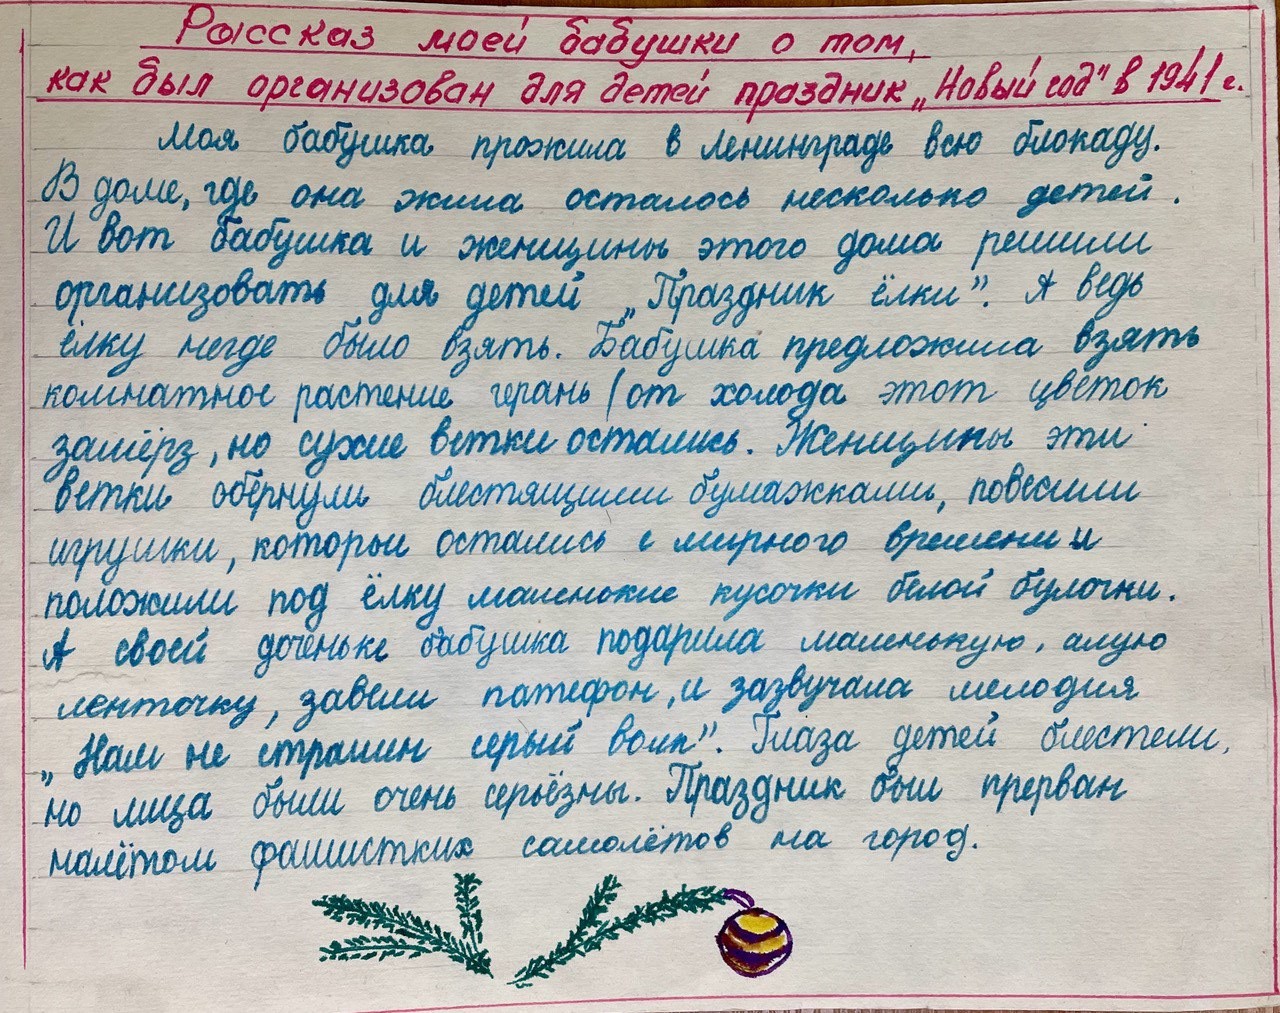 Рассказ моей бабушки о том,
как был организован для детей праздник „Новый год" в 1941 г.
Моя бабушка прожила в Ленинграде всю блокаду.
В доме, где она жила осталось несколько детей.
И вот бабушка и женщины этого дома решили
организовать для детей „Праздник ёлки". А ведь
ёлку негде было взять. Бабушка предложила взять
комнатное растение герань (от холода этот цветок
замёрз, но сухие ветки остались. Женщины эти
ветки обернули блестящими бумажками, повесили
игрушки, которые остались с мирного времени и
положили под ёлку маленькие кусочки белой булочки.
А своей доченьке бабушка подарила маленькую, алую
ленточку, завели патефон, и зазвучала мелодия
„Нам не страшен серый волк". Глаза детей блестели,
но лица были очень серьёзны. Праздник был прерван
налётом фашистких самолётов на город.